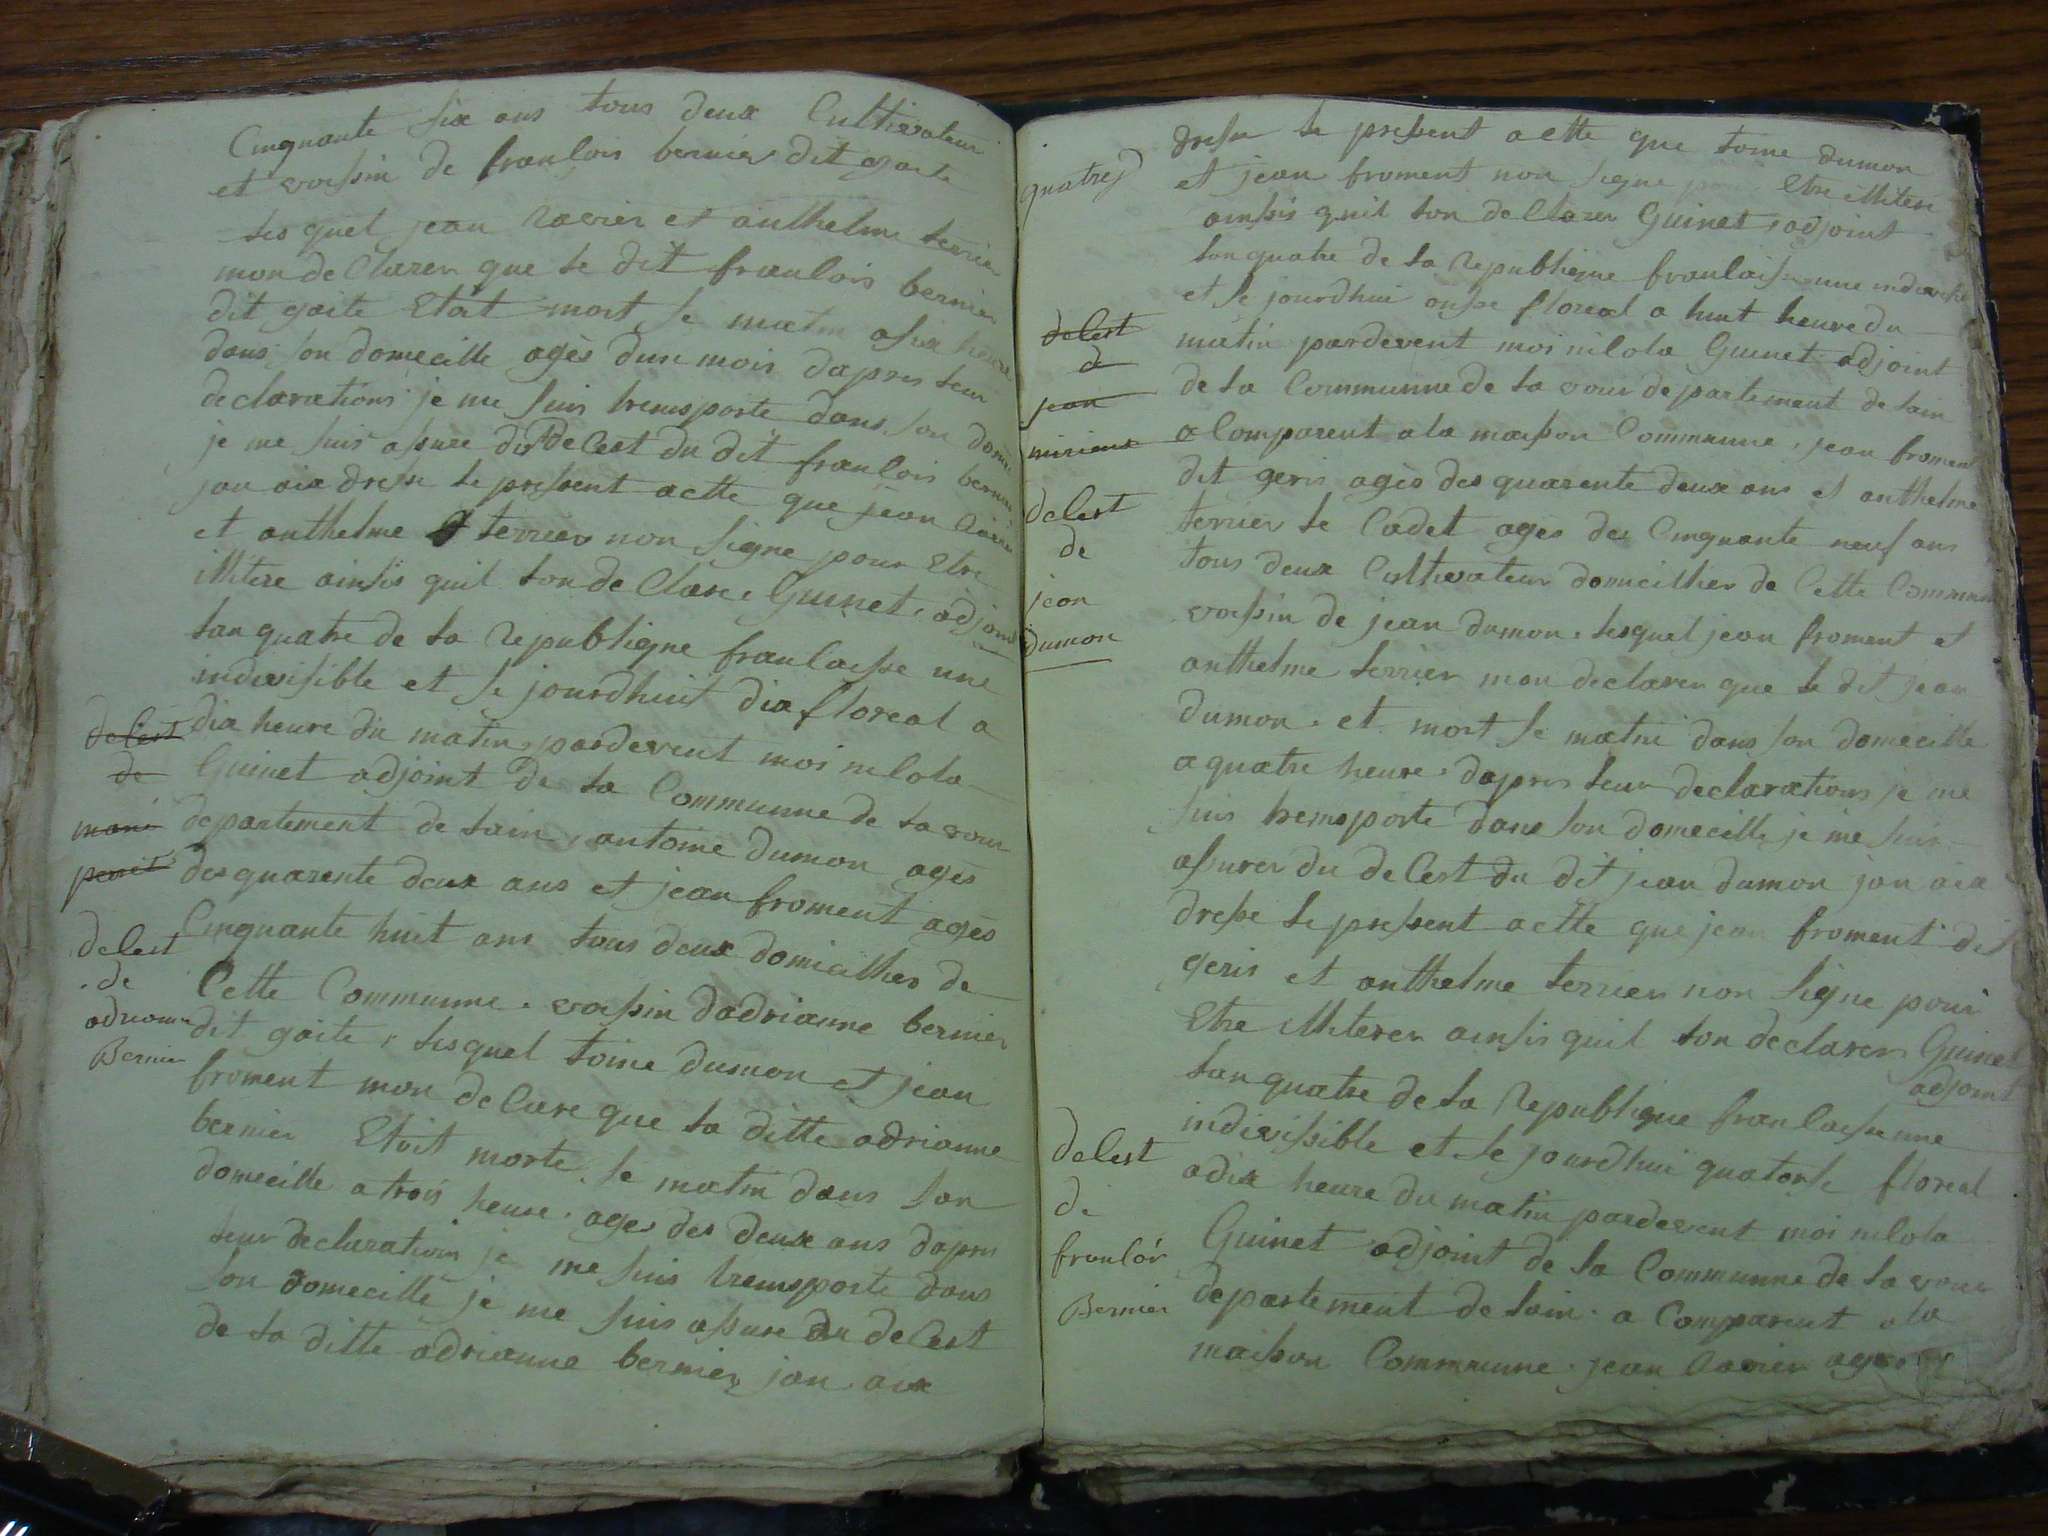 Cinquante six ans tous deux Cultivateur
et voissin de franlois bernier dit gaite
lesquel jean Ravier et anthelme terrier
mon de Clarer que le dit franlois bernier
dit gaite Etoit mort le matin a six heure
dans son domecille agès dun mois dapres leur
declarations je me suis trensporte dans son
je me suis assure du delest du dit franlois bernier
jan aix dresse le pressent actte que jean
et anthelme terrier non signe pour Etre
illitere ainsis quil lon de Clare, Guinet, adjoint
lan quatre de la republique franlaisse une
indivisible et le jourdhuit dix floreal a
delest
dix heure du matin, pardevent moi nilola
de
Guinet adjoint de la Communne de la vour
marie
departement de lain, antoine dumon agès
des quarente deux ans et jean froment agès
Cinquante huit ans tous deux domicilher de
delest
de
Cette Communne, voissin dadrianne bernier
adrianne
dit gaite, lesquel toine dumon et jean
Bernier
froment mon de Clare que la ditte adrianne
bernier Etoit morte le matin dans son
domecille a trois heure, ages des deux ans dapres
leur declaration je me suis trensporte dans
son domecille je me suis assure du delest
de la ditte adrianne bernier, jan aix
quatres
dresse le pressent actte que toine dumon
et jean froment non signe pour Etre illitere
ainsis quil lon de Clarer Guinet, adjoint
lan quatre de la republique franlaisse une
et le jourdhui onse floreal a huit heure du
delest
matin pardevent moi nilola Guinet adjoint
de
de la Communne de la vour departement de lain
jean
a Comparent a la maisson Communne, jean froment
dit geris agès des quarente deux ans et anthelme
delest
terrier le Cadet agès des Cinquante neuf ans
de
tous deux Cultivateur domicilher de Cette Communne
jean
voissin de jean dumon, lesquel jean froment et
dumon
anthelme terrier mon declarer que le dit jean
dumon, et mort le matin dans son domecille
a quatre heure, dapres leur declarations je me
suis trensporte dans son domecille, je me suis
assurer du delest du dit jean dumon jan aix
dresse le pressent actte que jean froment dit
geris et anthelme terrier non signe pour
Etre illiterer ainsis quil lon declarer Guinet
adjoint
lan quatre de la republique franlaisse une
indivissible et le jourdhui quatorse floreal
delest
a dix heure du matin pardevent moi nilola
de
Guinet adjoint de la Communne de la vour
franlois
departement de lain, a Comparent a la
Bernier
maisson Communne, jean Ravier agès